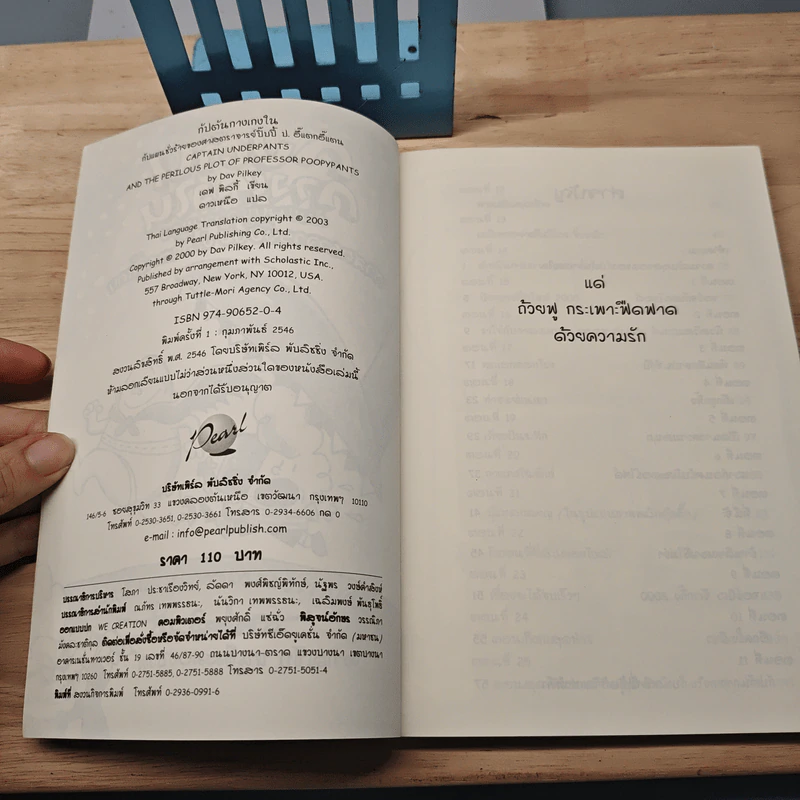 กัปตันกางเกงใน
กับแผนชั่วร้ายของศาสตราจารย์ปิ๊บปี้ ป. อึ๊แตกอึ๊แตน
CAPTAIN UNDERPANTS
AND THE PERILOUS PLOT OF PROFESSOR POOPYPANTS
by Dav Pilkey
เดฟ พิลกี้ เขียน
ดาวเหนือ แปล
Thai Language Translation copyright © 2003
by Pearl Publishing Co., Ltd.
Copyright © 2000 by Dav Pilkey. All rights reserved.
Published by arrangement with Scholastic Inc.,
557 Broadway, New York, NY 10012, USA.
through Tuttle-Mori Agency Co., Ltd.
ISBN 974-90652-0-4
พิมพ์ครั้งที่ 1 : กุมภาพันธ์ 2546
สงวนลิขสิทธิ์ พ.ศ. 2546 โดยบริษัทเพิร์ล พับลิชชิ่ง จำกัด
ห้ามลอกเลียนแบบไม่ว่าส่วนหนึ่งส่วนใดของหนังสือเล่มนี้
นอกจากได้รับอนุญาต
Pearl
บริษัทเพิร์ล พับลิชชิ่ง จำกัด
146/5-6 ซอยสุขุมวิท 33 แขวงคลองตันเหนือ เขตวัฒนา กรุงเทพฯ 10110
โทรศัพท์ 0-2530-3651, 0-2530-3661 โทรสาร 0-2934-6606 กด 0
e-mail : info@pearlpublish.com
ราคา 110 บาท
บรรณาธิการบริหาร โสภา ประชาเรืองวิทย์, ลัดดา พงศ์พิชญ์พิทักษ์, นัฐพร วงษ์ดำเลิงษ์
บรรณาธิการสำนักพิมพ์ ณภัทร เทพพรรธนะ, นันวิภา เทพพรรธนะ, เฉลิมพงษ์ พันธุโพธิ์
ออกแบบปก WE CREATION คอมพิวเตอร์ พยุงศักดิ์ แซ่ฉั่ว พิสูจน์อักษร วรรณิภา
มังคละชาติกุล ติดต่อเพื่อสั่งซื้อหรือจัดจำหน่ายได้ที่ บริษัทซีเอ็ดยูเคชั่น จำกัด (มหาชน)
อาคารเนชั่นทาวเวอร์ ชั้น 19 เลขที่ 46/87-90 ถนนบางนา-ตราด แขวงบางนา เขตบางนา
กรุงเทพฯ 10260 โทรศัพท์ 0-2751-5885, 0-2751-5888 โทรสาร 0-2751-5051-4
พิมพ์ที่ สงวนกิจการพิมพ์ โทรศัพท์ 0-2936-0991-6
แด่
ถ้วยฟู กระเพาะฟืดฟาด
ด้วยความรัก